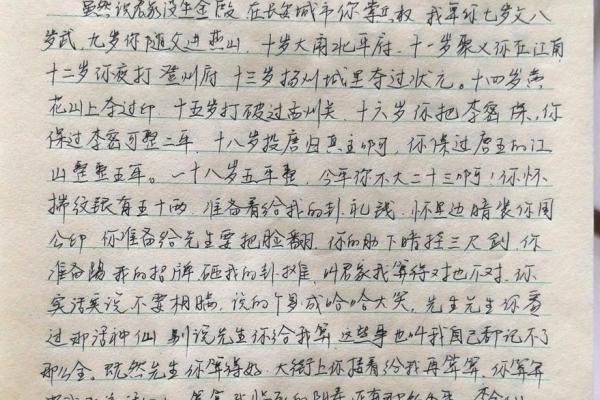 虽然说君家没坐金殿 在长安城市你掌正权 我算你七岁文八
岁武,九岁你随父进燕山、十岁大闹北平府、十一岁聚义你在江
十二岁你夜打登州府 十三岁扬州城里夺过状元。十四岁黄
花山上夺过印、十五岁打破过古州关、十六岁你把李密保、你
保过李密可整二年、十八岁投唐归真主啊、你保过唐王的江
山整整五年。一十八岁五年整、今年你不大二十三啊!你怀
揣纹银有五十两、准备着给我的卦礼钱、怀里边暗装你国
公印 你准备给先生要把脸翻、你的肋下暗挂三尺剑 你
准备踢我的招牌砸我的卦摊、叫君家我算得对也不对、你
实话实说不要相瞒、说的个身成哈哈大笑、先生先生你看
过那活神仙 别说先生你给我算 这些事也叫我自己都记不了
那么全。既然先生你算得好、大街上你接着给我再算算、你算算